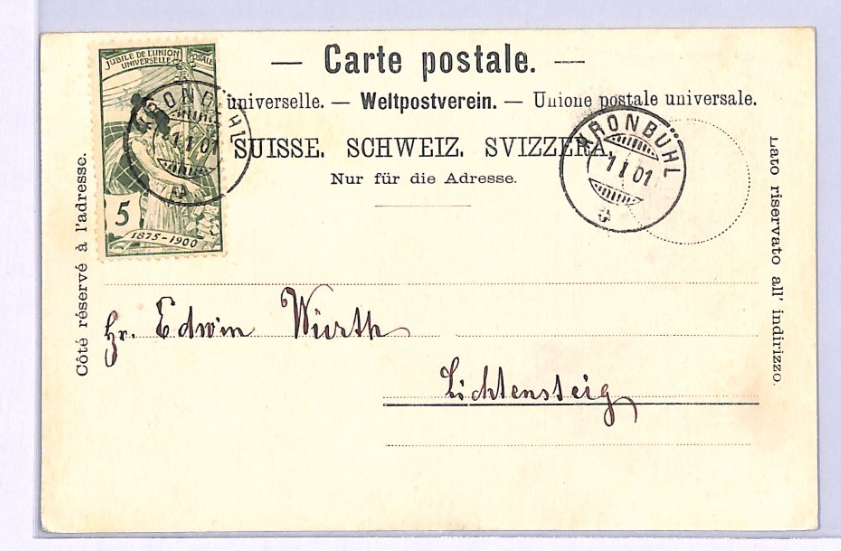 JUBILÉ DE L'UNION POSTALE
UNIVERSELLE
5
1875-1900
KRONBÜHL
1 I 01
— Carte postale. —
universelle. — Weltpostverein. — Unione postale universale.
SUISSE. SCHWEIZ. SVIZZERA.
Nur für die Adresse.
KRONBÜHL
1 I 01
Côté réservé à l'adresse.
Lato riservato all' indirizzo.
Hr. Edwin Würth
Lichtensteig